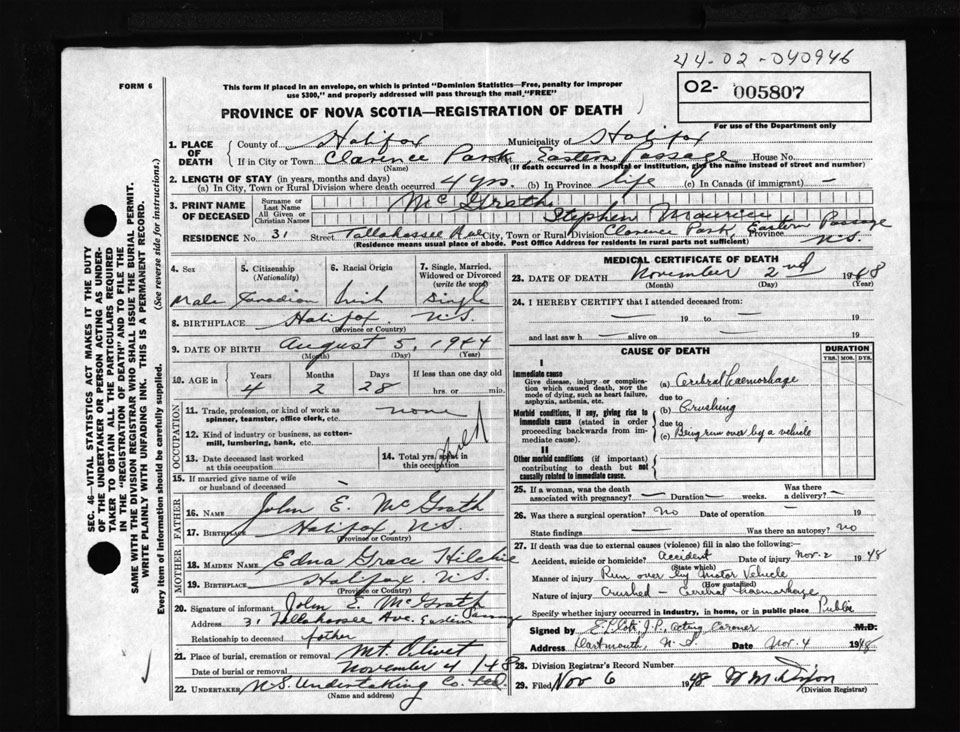 44-02-040946
FORM 6
This form if placed in an envelope, on which is printed "Dominion Statistics—Free, penalty for improper
use $300," and properly addressed will pass through the mail "FREE"
02- 005807
PROVINCE OF NOVA SCOTIA—REGISTRATION OF DEATH
For use of the Department only
1. PLACE OF DEATH
County of Halifax Municipality of Halifax
If in City or Town Clarence Park, Eastern Passage House No.
(Name) (If death occurred in a hospital or institution, give the name instead of street and number)
2. LENGTH OF STAY (in years, months and days)
(a) In City, Town or Rural Division where death occurred 4 yrs. (b) In Province life (c) In Canada (if immigrant) —
3. PRINT NAME OF DECEASED
Surname or Last Name McGrath
All Given or Christian Names Stephen Maurice
RESIDENCE No. 31 Street Tallahassee Ave City, Town or Rural Division Clarence Park, Eastern Passage Province N.S.
(Residence means usual place of abode. Post Office Address for residents in rural parts not sufficient)
4. Sex 5. Citizenship (Nationality) 6. Racial Origin 7. Single, Married, Widowed or Divorced (write the word)
Male Canadian Irish Single
8. BIRTHPLACE Halifax N.S.
(Province or Country)
9. DATE OF BIRTH August 5, 1944
(Month) (Day) (Year)
10. AGE in Years Months Days If less than one day old
4 2 28 hrs. or min.
OCCUPATION
11. Trade, profession, or kind of work as
spinner, teamster, office clerk, etc. none
12. Kind of industry or business, as cotton-
mill, lumbering, bank, etc.
13. Date deceased last worked
at this occupation
14. Total yrs. spent in
this occupation
15. If married give name of wife
or husband of deceased —
FATHER
16. NAME John E. McGrath
17. BIRTHPLACE Halifax, N.S.
(Province or Country)
MOTHER
18. MAIDEN NAME Edna Grace Hilchie
19. BIRTHPLACE Halifax N.S.
(Province or Country)
20. Signature of informant John E. McGrath
Address 31 Tallahassee Ave. Eastern Passage
Relationship to deceased father
21. Place of burial, cremation or removal Mt. Olivet
Date of burial or removal November 4/48
22. UNDERTAKER N.S. Undertaking Co. Ltd.
(Name and address)
MEDICAL CERTIFICATE OF DEATH
23. DATE OF DEATH November 2nd 1948
(Month) (Day) (Year)
24. I HEREBY CERTIFY that I attended deceased from:
— 19 to — 19
and last saw h — alive on — 19
CAUSE OF DEATH
DURATION
YRS. MOS. DYS.
I
Immediate cause
Give disease, injury or complica-
tion which caused death, NOT the
mode of dying, such as heart failure,
asphyxia, asthenia, etc.
(a) Cerebral haemorhage
due to
Morbid conditions, if any, giving rise to
immediate cause (stated in order
proceeding backwards from im-
mediate cause).
(b) Crushing
due to
(c) Being run over by a vehicle
II
Other morbid conditions (if important)
contributing to death but not
causally related to immediate cause.
25. If a woman, was the death
associated with pregnancy? — Duration — weeks. Was there
a delivery? —
26. Was there a surgical operation? No Date of operation —
State findings — Was there an autopsy? no
27. If death was due to external causes (violence) fill in also the following:—
Accident, suicide or homicide? Accident Date of injury Nov-2 1948
(State which)
Manner of injury Run over by Motor Vehicle
(How sustained)
Nature of injury Crushed — Cerebral haemorhage
Specify whether injury occurred in industry, in home, or in public place Public
Signed by J.P., Acting Coroner M.D.
Address Dartmouth, N.S. Date Nov. 4 1948
28. Division Registrar's Record Number
29. Filed Nov 6 1948
(Division Registrar)
SEC. 46—VITAL STATISTICS ACT MAKES IT THE DUTY
OF THE UNDERTAKER OR PERSON ACTING AS UNDER-
TAKER TO OBTAIN ALL THE PARTICULARS REQUIRED
IN THE "REGISTRATION OF DEATH" AND TO FILE THE
SAME WITH THE DIVISION REGISTRAR WHO SHALL ISSUE THE BURIAL PERMIT.
WRITE PLAINLY WITH UNFADING INK. THIS IS A PERMANENT RECORD.
Every item of information should be carefully supplied. (See reverse side for instructions.)